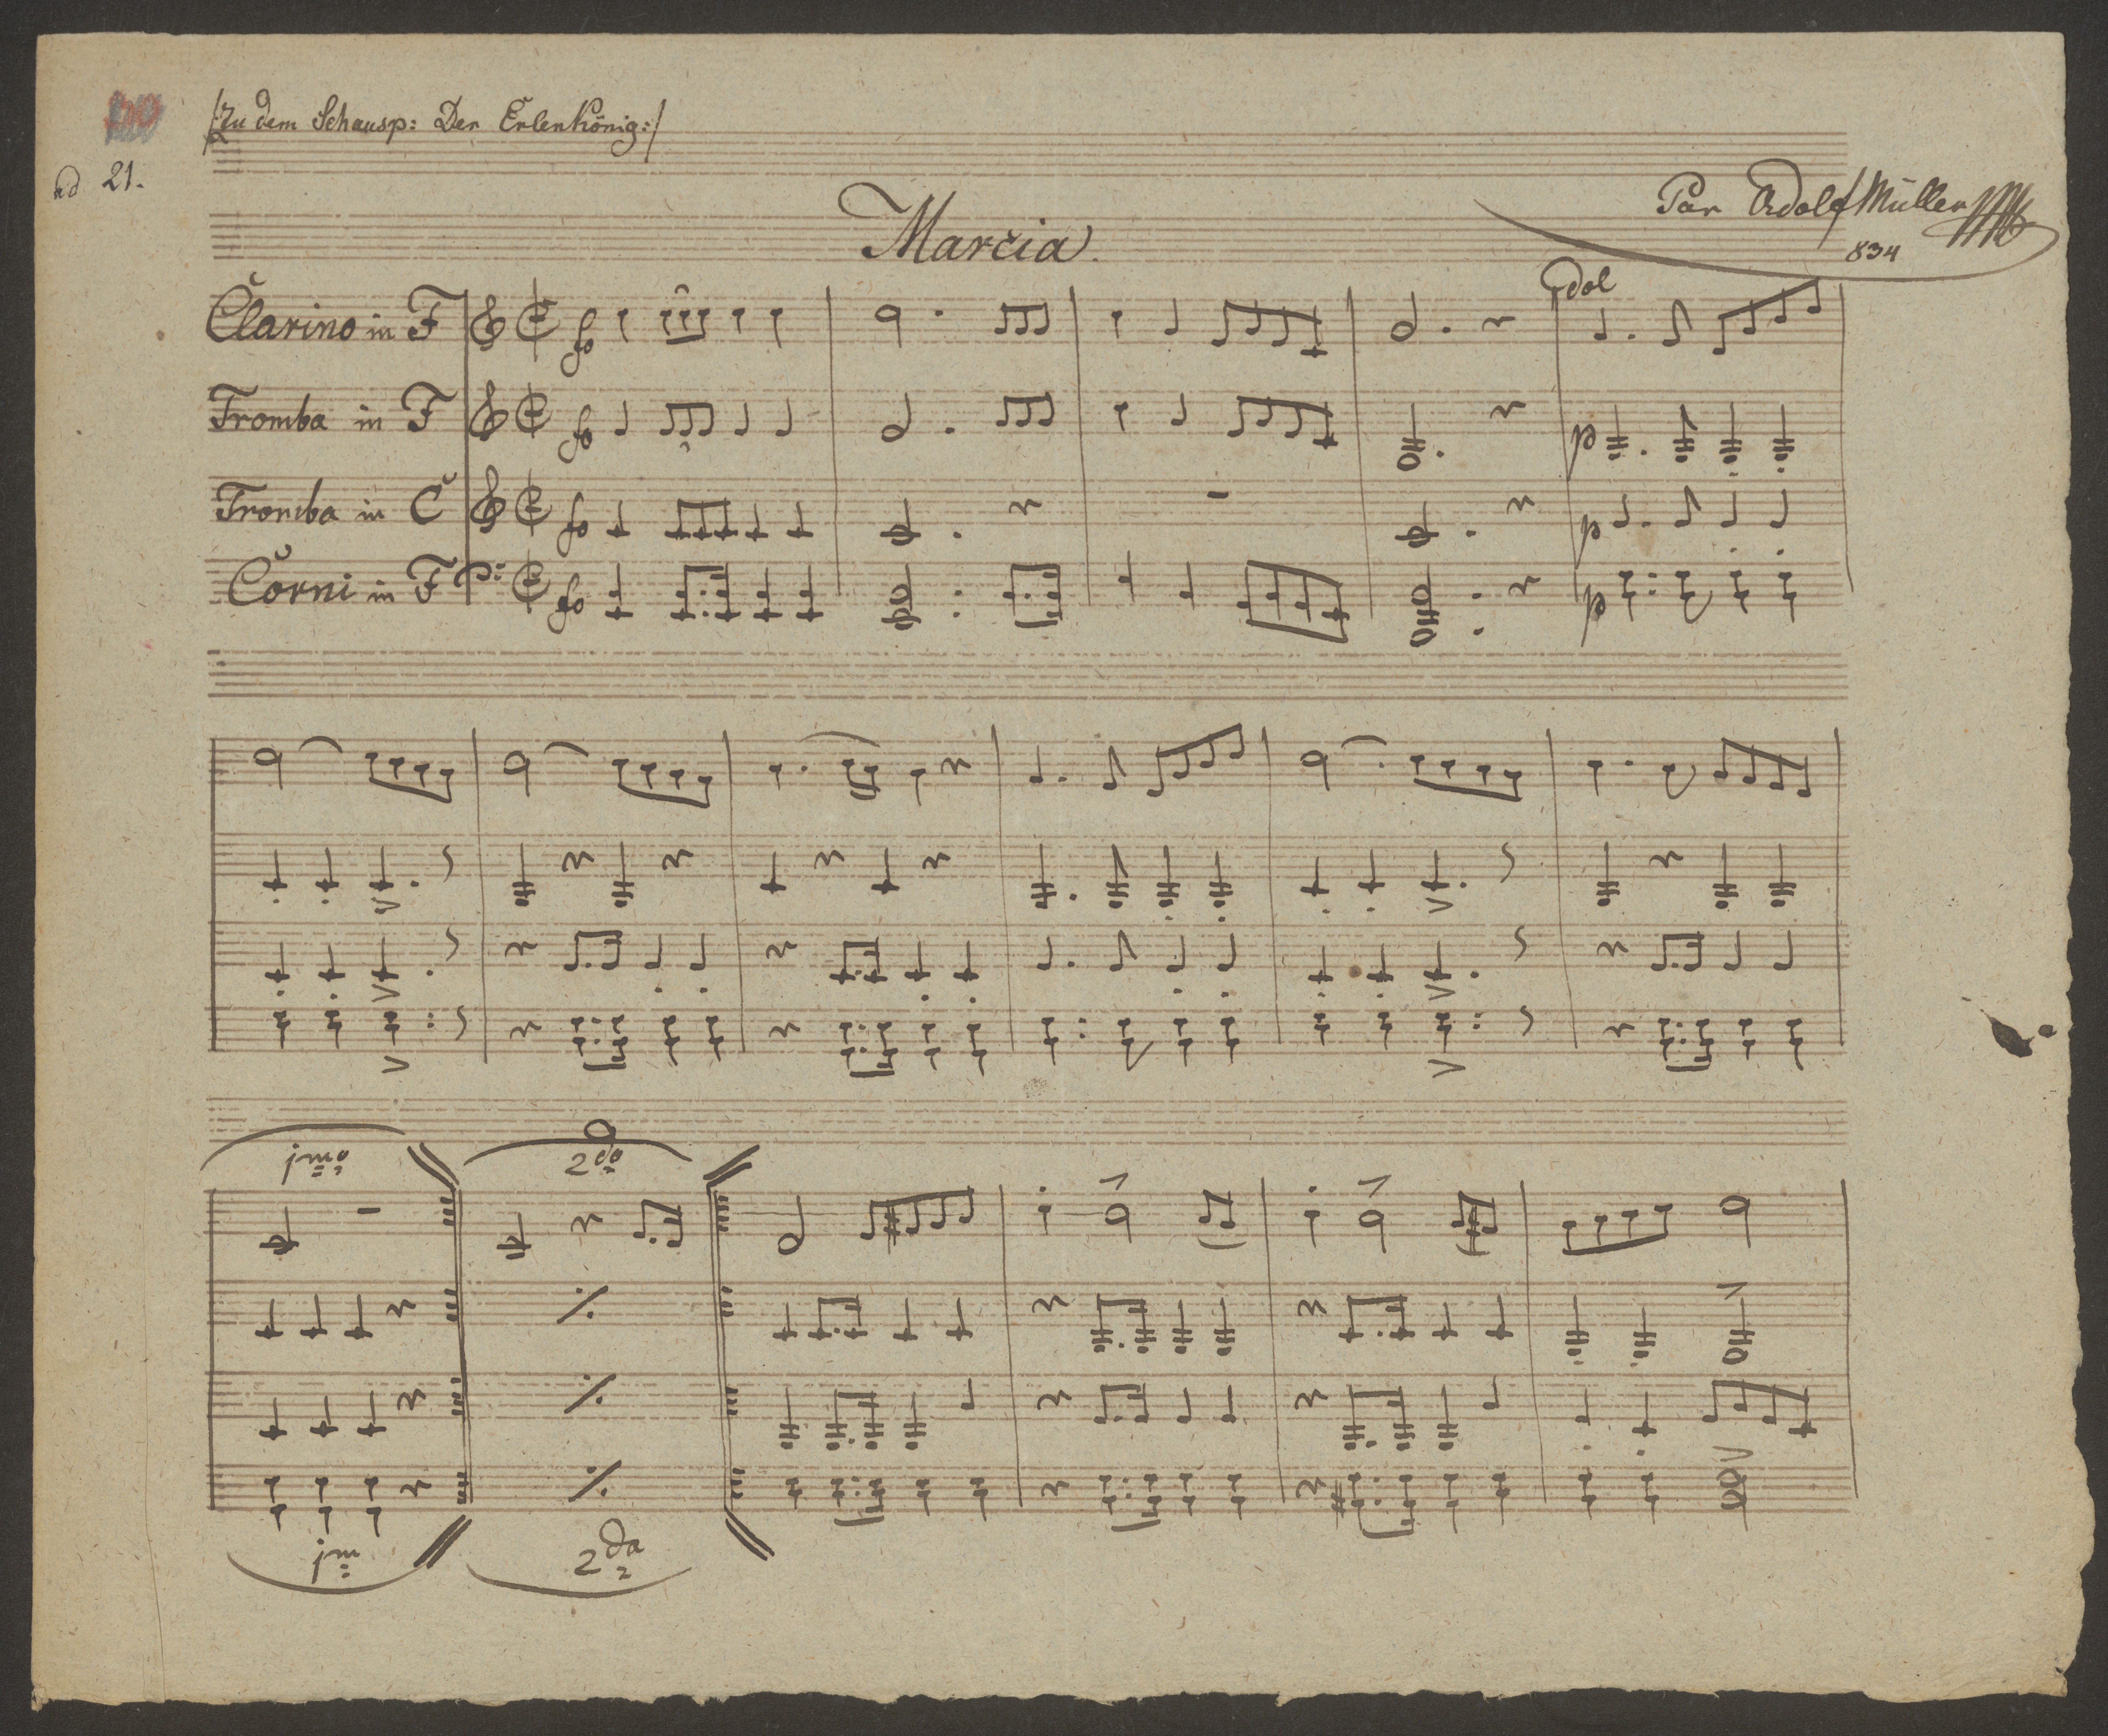 /:Zu dem Schausp: Der Erlenkönig:/
ad 21.
Par Adolf Müller
834
Marcia.
dol
Clarino in F fo
Tromba in F fo p
Tromba in C fo p
Corni in F fo p
1mo 2do
1m 2da